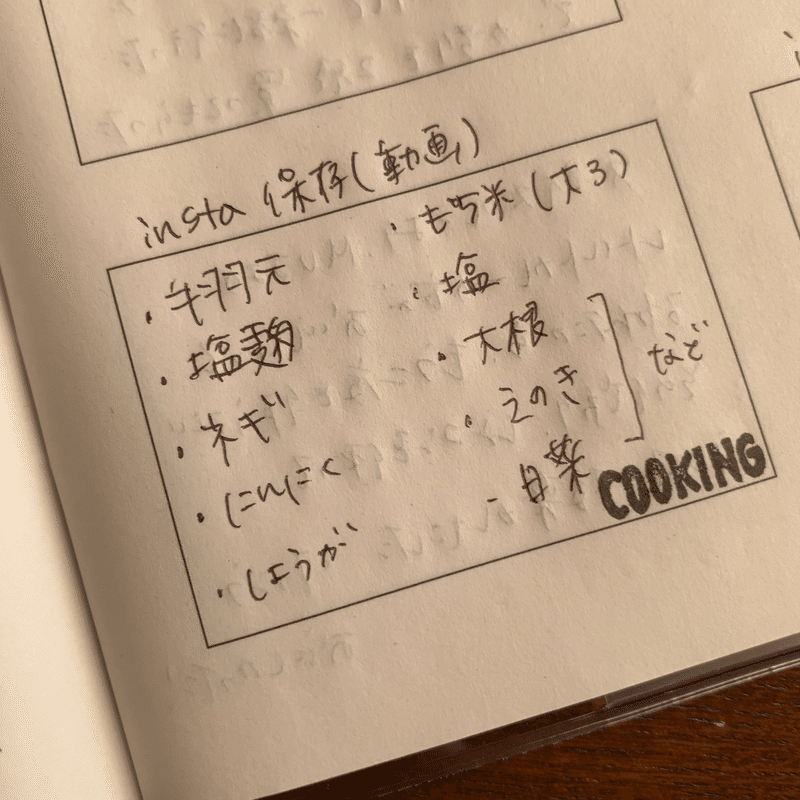 insta 保存(動画)
・手羽元
・塩麹
・ネギ
・にんにく
・しょうが
・もち米(大3)
・塩
・大根
・えのき
・白菜
など
COOKING